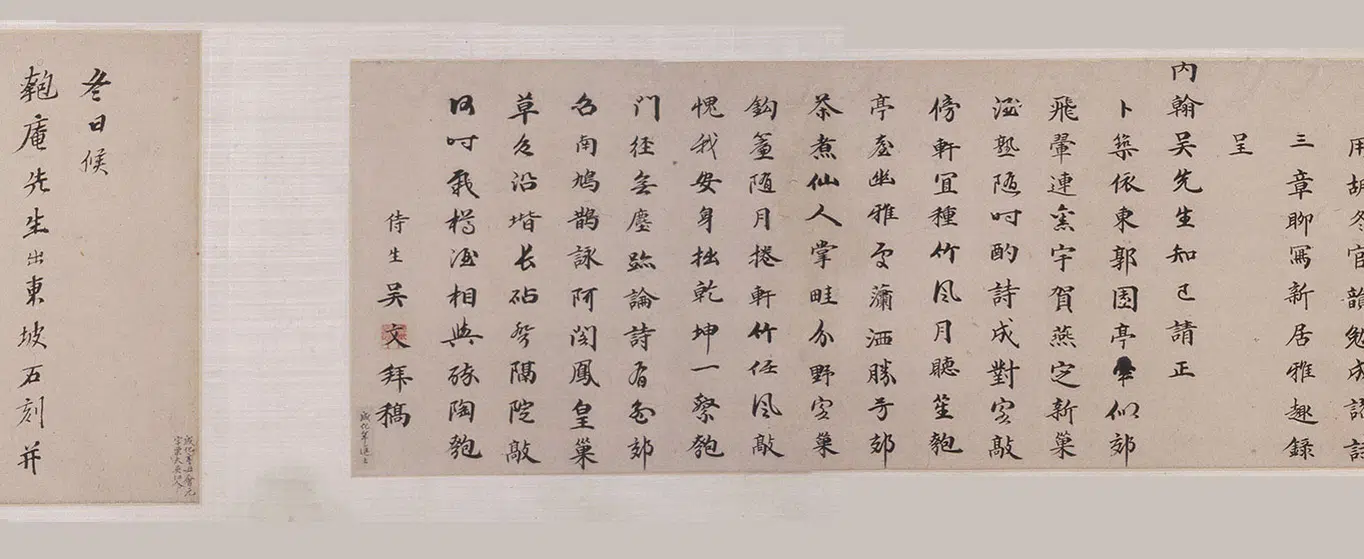 用胡冬官韻勉成記詩
三章聊寫新居雅趣録
呈
内翰吴先生知己請正
卜築依東郭園亭似郊
飛翬連宇賀燕定新巢
酒熟随时酌詩成對客敲
傍軒冝種竹風月聽笙匏
亭臺幽雅處瀟洒勝于郊
茶煮仙人掌畦分野客巢
鈎簾随月捲軒竹任風敲
愧我安身拙乾坤一繫匏
门径無塵跡論詩有島郊
召南鳩鵲詠阿閣鳳皇巢
草色沿堦长砧聲隔院敲
何时載樽酒相與陶匏
侍生吴文拜稿
成化年進士
冬日候
匏庵先生出東坡石刻并